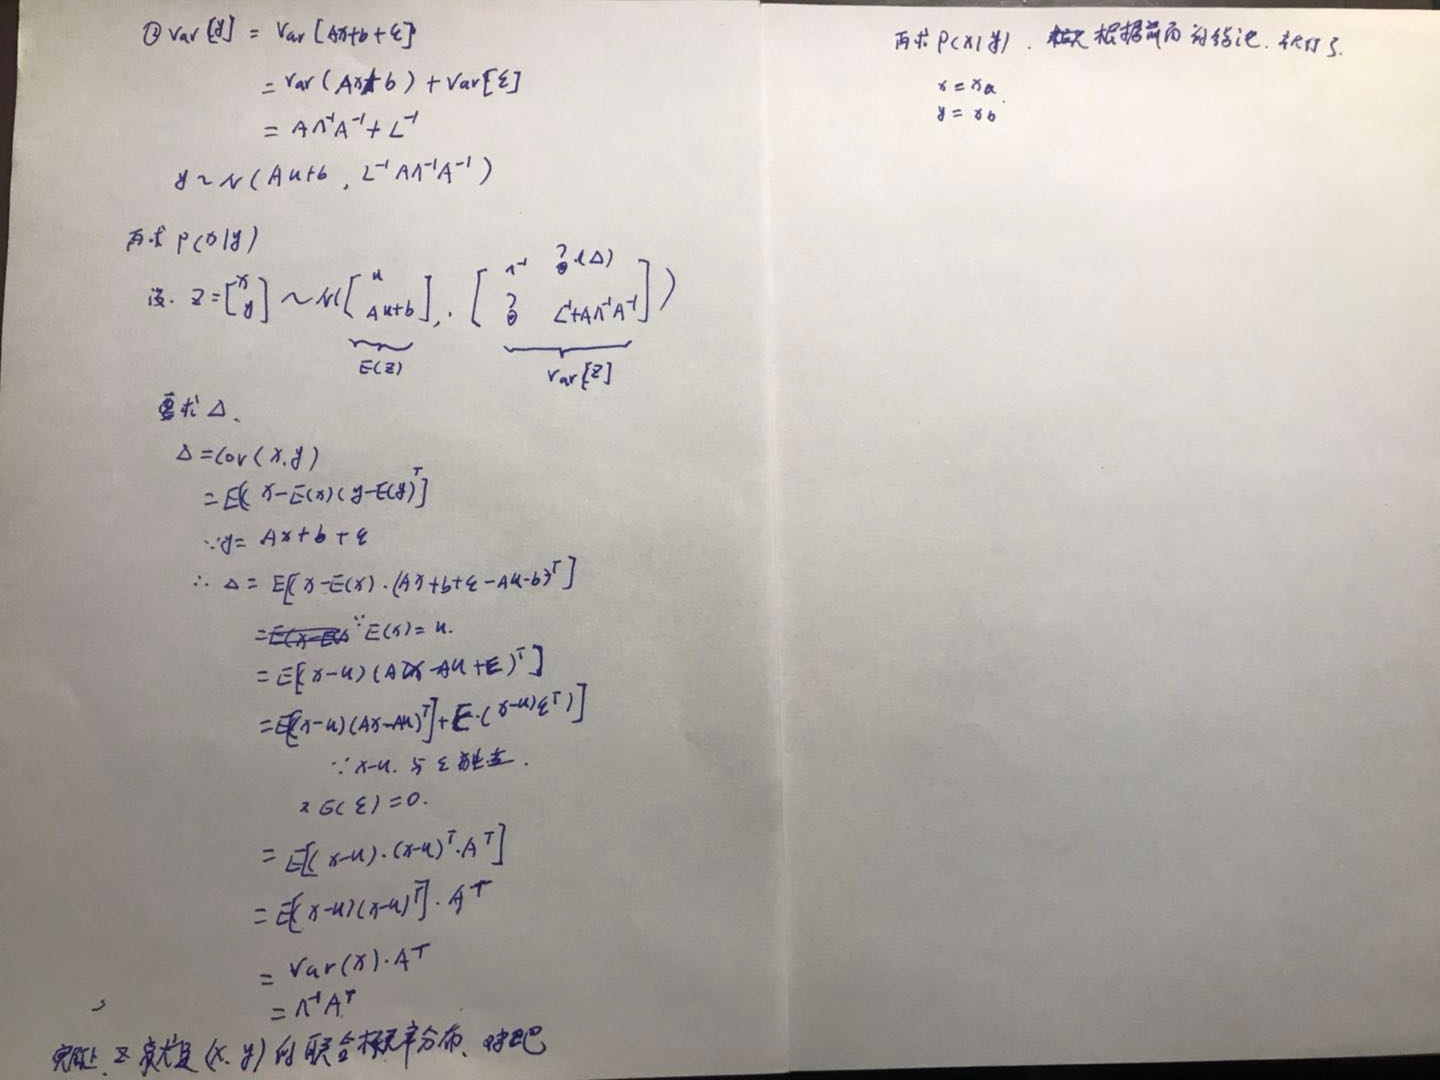 ② Var[y] = Var[Ax+b+ε]
= Var(Ax+b) + Var[ε]
= AΛ⁻¹A⁻¹ + L⁻¹
y ~ N(Au+b, L⁻¹ AΛ⁻¹A⁻¹)
再求 P(x|y)
设. Z = [x y] ~ N([u Au+b], [Λ⁻¹ ?(Δ) ? L⁻¹+AΛ⁻¹A⁻¹])
E(Z) Var[Z]
要求 Δ.
Δ = Cov(x.y)
= E[(x-E(x)(y-E(y)ᵀ]
∵ y = Ax+b+ε
∴ Δ = E[x-E(x)·(Ax+b+ε-Au-b)ᵀ]
= ∵ E(x) = u.
= E[(x-u)(Ax-Au+ε)ᵀ]
= E[(x-u)(Ax-Au)ᵀ] + E·(x-u)εᵀ)]
∵ x-u. 与 ε 独立.
又 E(ε) = 0.
= E[(x-u)·(x-u)ᵀ·Aᵀ]
= E[(x-u)(x-u)ᵀ]·Aᵀ
= Var(x)·Aᵀ
= Λ⁻¹Aᵀ
实际上 Z 就是 (x. y) 的联合概率分布. 对吧
再求 P(x|y). 根据前面的结论. 就行了.
x = xa.
y = xb